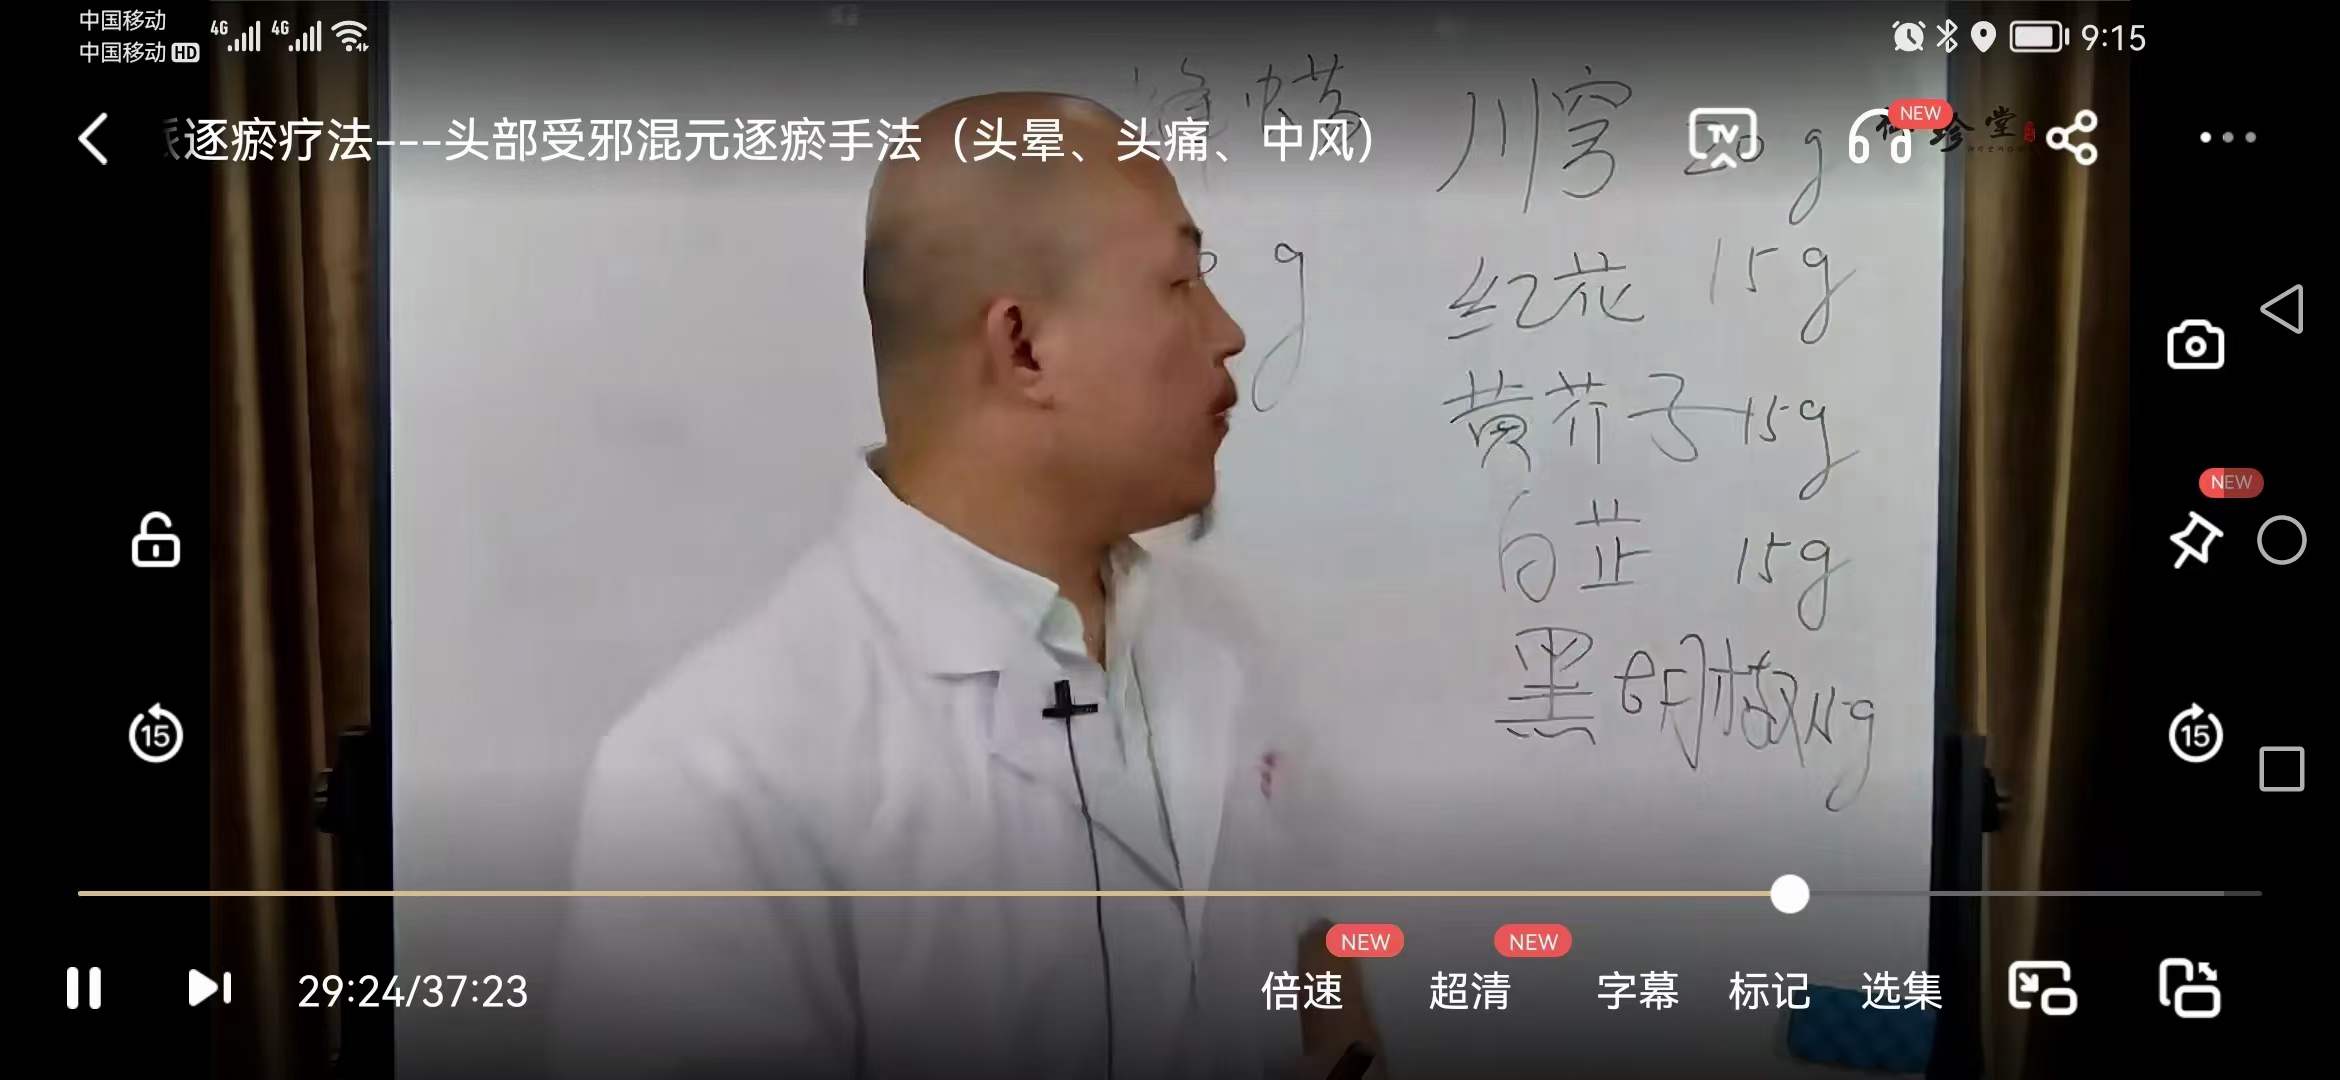 中国移动
中国移动 HD
4G 4G
9:15
逐瘀疗法---头部受邪混元逐瘀手法（头晕、头痛、中风）
TV
NEW
堂
蜂蜡
川穹 20g
g
红花 15g
黄芥子 15g
白芷 15g
黑胡椒 15g
NEW
15
15
29:24/37:23
倍速 NEW
超清 NEW
字幕
标记
选集